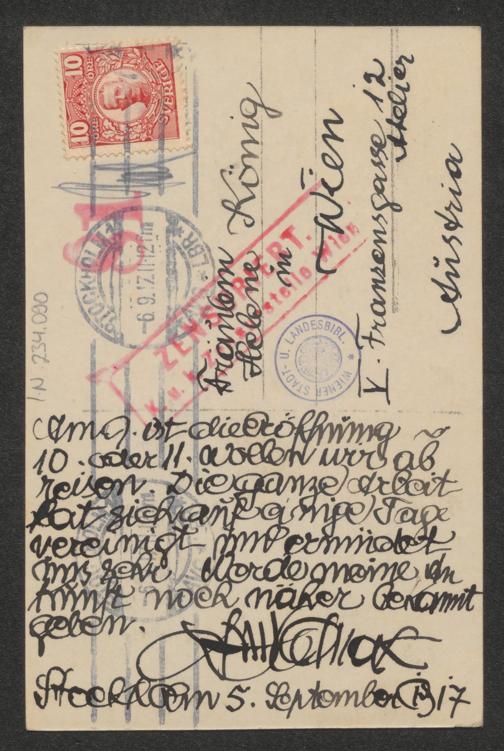 10 ÖRE
SVERIGE
10 ÖRE
61
STOCKHOLM
-6.9.17.11-12 fm
LBR
ZENSURIERT.
K. u. k. Zensurstelle Wien
WIENER STADT- U. LANDESBIBL.
I.N. 234.090
Fräulein
Helene König
in
Wien
V. Franzensgasse 12
Atelier
Austria
Am 7 ist die Eröffnung
10. oder 11. wollen wir ab
reisen. Die ganze Arbeit
hat sich auf einige Tage
vereinigt und ermüdet
uns sehr. Werde meine An
kunft noch näher bekannt
geben.
Stockholm 5. September 1917